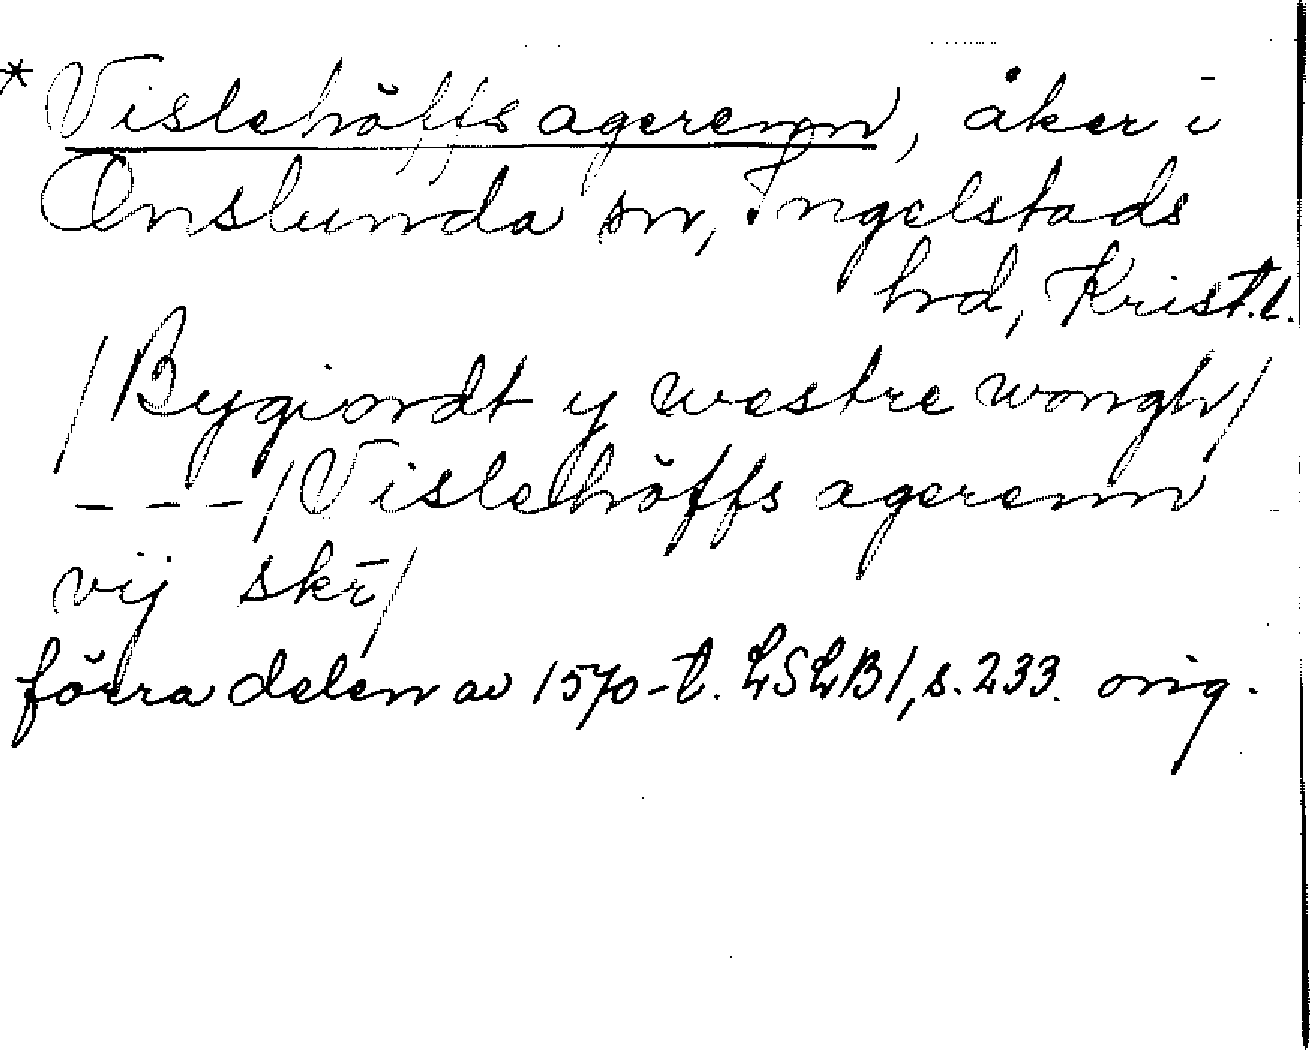 * Vislehöffs agerenn, åker i
Onslunda sn, Ingelstads
hrd, Krist.l.
/Bygiordt y westre wongh/
---/Vislehöffs agerenn
vij skr̄/
förra delen av 1570-t. LSLB1, s. 233. orig.